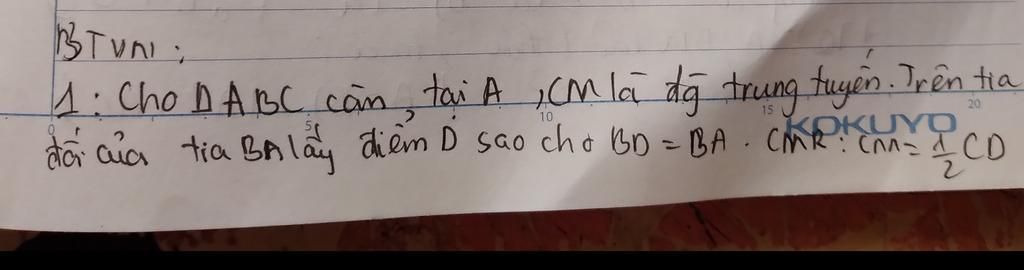 BTVN:
1: Cho Δ ABC cân tại A, CM là đg trung tuyến. Trên tia
0 5 10 15 20
KOKUYO
đối của tia BA lấy điểm D sao cho BD = BA. CMR: CM = 1/2 CD